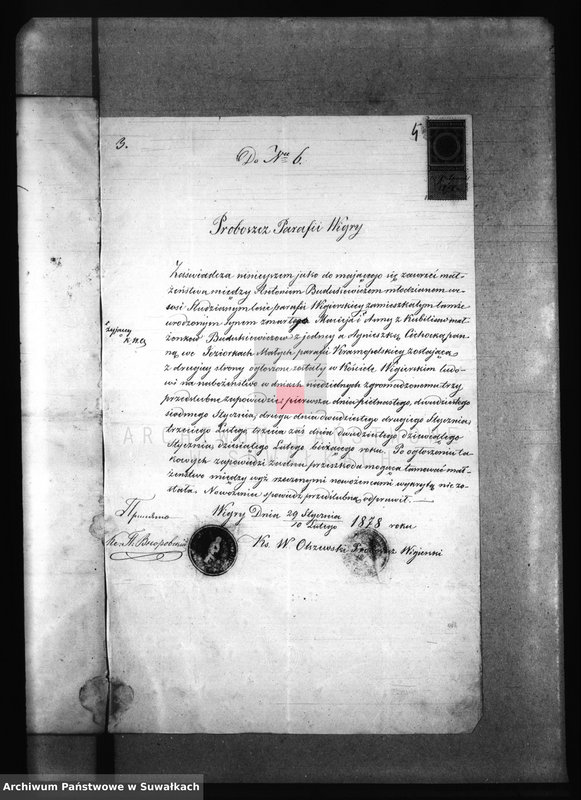 3.
Do Nru 6.
Proboszcz Parafii Wigry
Zaświadcza niniejszem jako do mającego się zawrzeć mał-
żeństwa między Antonim Budukiewiczem młodzianem we
wsi Studziannym Lesie parafii Wigierskiej zamieszkałym tamże
urodzonym synem zmarłego Macieja i Anny z Kubilisów mał-
żonków Budukiewiczów z jednej a Agnieszką Cichocką pan-
ną we Jeziorkach Małych parafii zostającą
z drugiej strony ogłoszone zostały w Kościele Wigierskim ludo-
wi na nabożeństwo w dniach niedzielnych zgromadzonemu trzy
przedślubne zapowiedzi pierwsza dnia piętnastego, dwudziestego
siódmego Stycznia, druga dnia dwudziestego drugiego Stycznia,
trzeciego Lutego, trzecia zaś dnia dwudziestego dziewiątego
Stycznia, dziesiątego Lutego bieżącego roku. Po ogłoszeniu ta-
kowych zapowiedzi żadna przeszkoda mogąca tamować mał-
żeństwo między wyż rzeczonymi nowożeńcami wykrytą nie zo-
stała. Nowożeniec spowiedź przedślubną odprawił.
żyjącej
Wigry Dnia 29 Stycznia / 10 Lutego 1878 roku
Принято
Ks. W. Olszewski Proboszcz Wigierski
ARCHIWUM PAŃSTWOWE
Archiwum Państwowe w Suwałkach